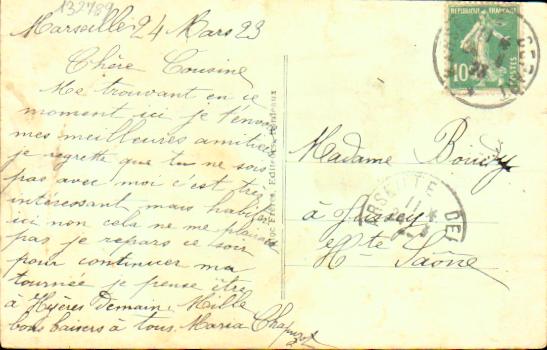 132789
Marseille 24 Mars 23
Chère Cousine
Me trouvant en ce
moment ici je t'envoie
mes meilleures amitiés
je regrette que tu ne sois
pas avec moi c'est très
intéressant mais habiter
ici non cela ne me plairait
pas je repars ce soir
pour continuer ma
tournée je pense être
à Hyères Demain. Mille
bons baisers à tous. Maria
Frères, Editeurs, Bordeaux
REPUBLIQUE FRANÇAISE
10
POSTES
Madame
à
Hte Saône
MARSEILLE